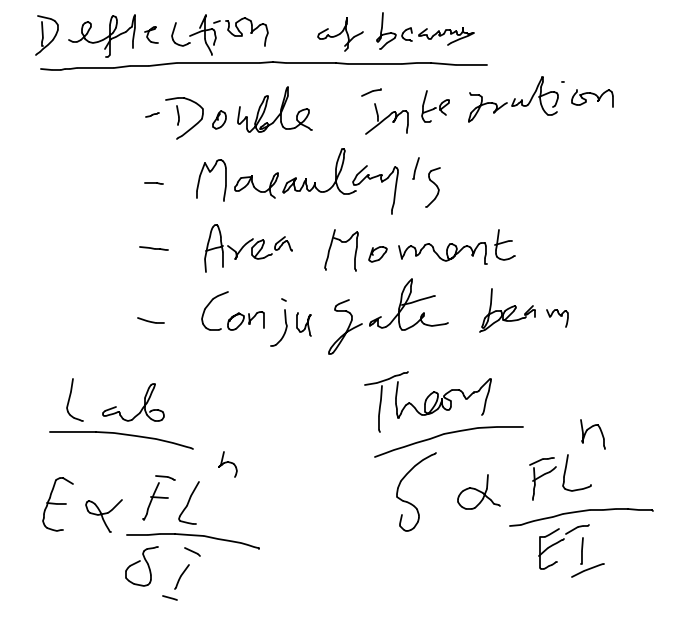 Deflection of beams
- Double Integration
- Macaulay's
- Area Moment
- Conjugate beam
Lab Theory
E ∝ FLⁿ / δI δ ∝ FLⁿ / EI